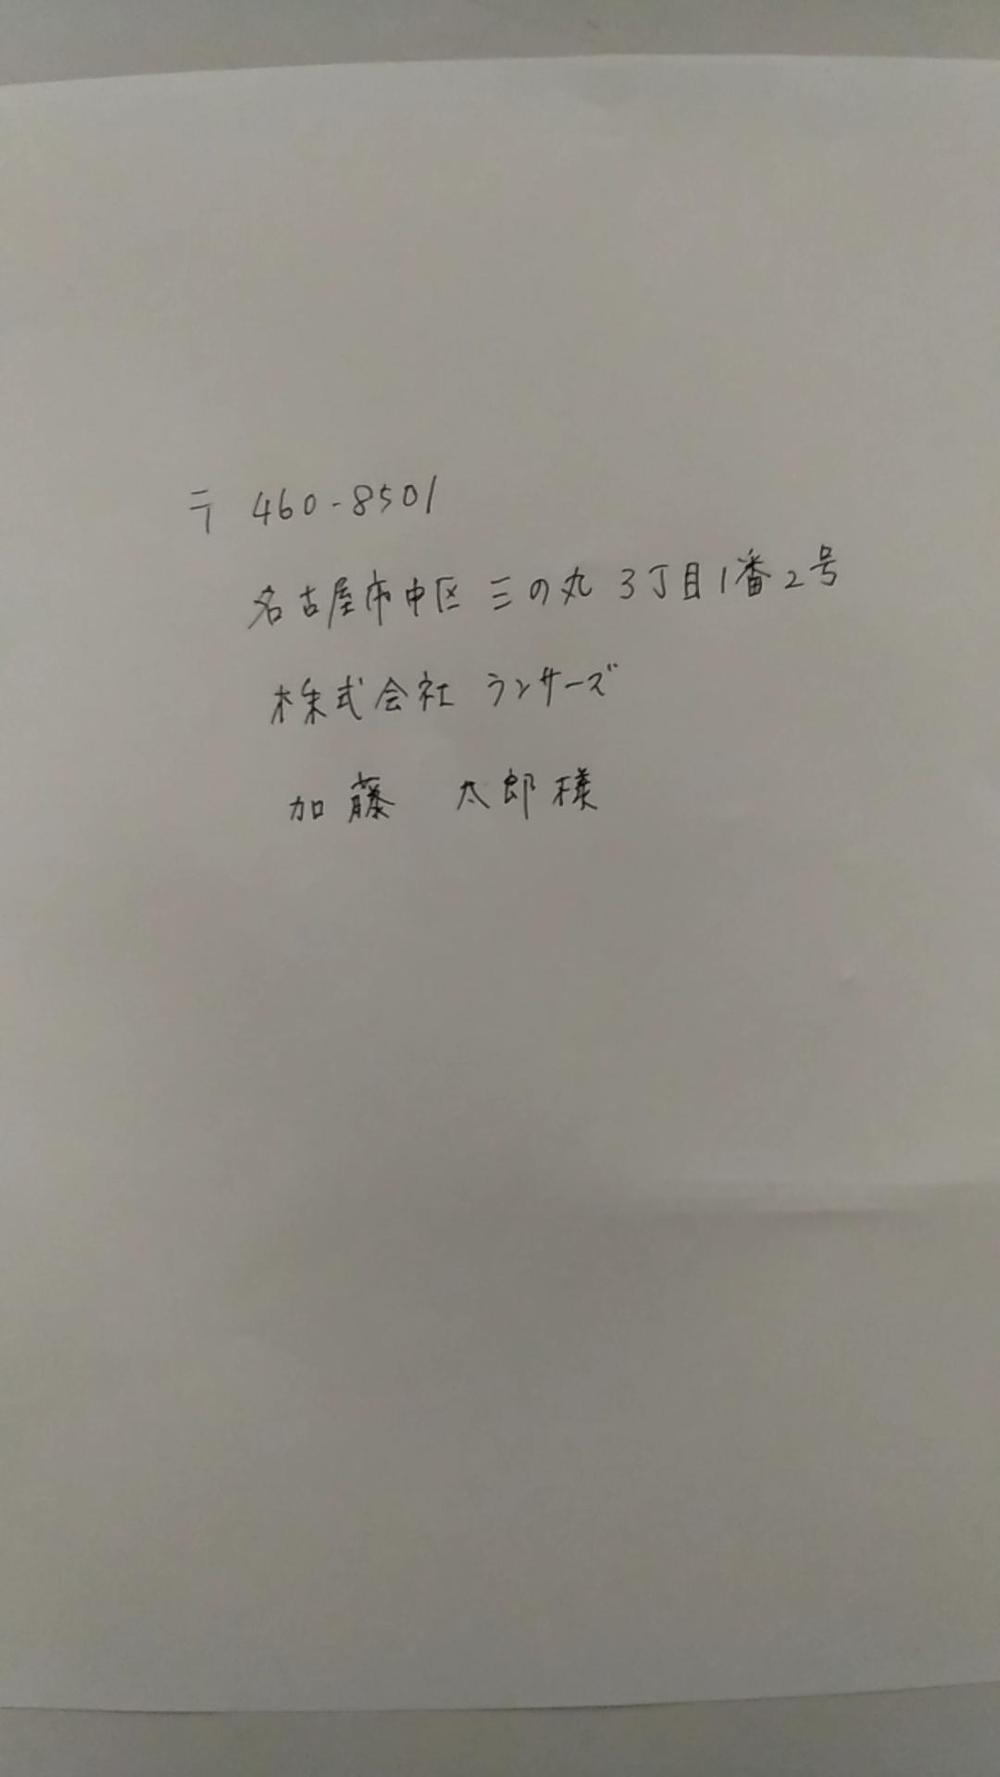 〒 460-8501
名古屋市中区 三の丸 3丁目1番2号
株式会社 ランサーズ
加藤 太郎様